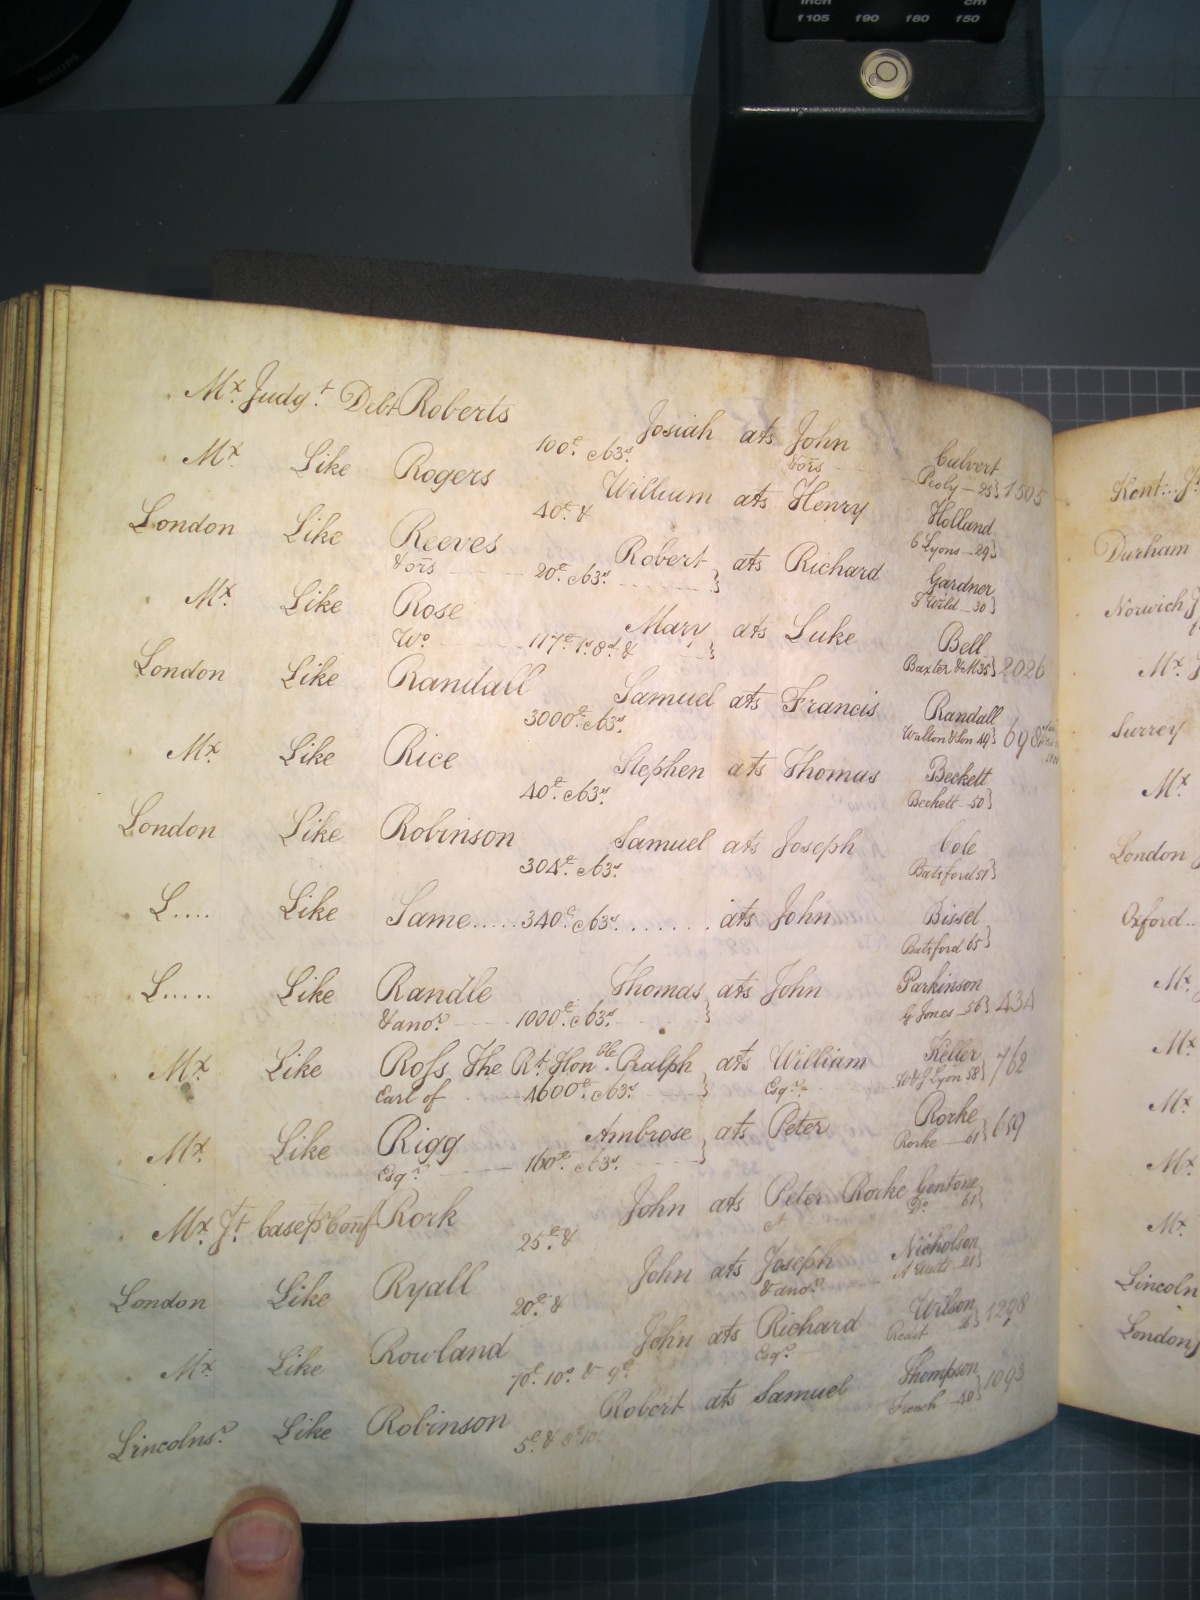 inch cm
f105 f90 f80 f50
PHILIPS
Mx. Judgt. Debt Roberts Josiah ats John Culvert
100£ & 63s. & ors 25} 1505
Mx. Like Rogers William ats Henry Holland
40£. & C Lyons 29}
London Like Reeves Robert } ats Richard Gardner
& ors 20£. & 63s. 30}
Mx. Like Rose Mary } ats Luke Bell
Wo. 117£. 1s. 8d. & Baxter & M 35} 2026
London Like Randall Samuel ats Francis Randall
3000£. & 63s. Walton & Son 49} 698
Mx. Like Rice Stephen ats Thomas Beckett
40£. & 63s. Beckett 50}
London Like Robinson Samuel ats Joseph Cole
304£. & 63s. Batsford 51}
L.... Like Same..... 340£. & 63s. ....... ats John Bissel
Batsford 65}
L..... Like Randle Thomas } ats John Parkinson
& anor. 1000£. & 63s. G Jones 56} 434
Mx. Like Ross The Rt. Honble. Ralph } ats William Keller
Earl of 4600£. & 63s. Esqr. W & G Lyon 58} 762
Mx. Like Rigg Ambrose } ats Peter Rorke
Esqr. 160£. & 63s. Rorke 61} 659
Mx. Jt. Case p Conf Rork John ats Peter Rorke Gentone
25£. & Do. 61}
London Like Ryall John ats Joseph Nicholson
20£. & & anor. 21}
Mx. Like Rowland John ats Richard Wilson
70£. 10s. & 9£ Esqr. 26} 1298
Lincolnsr. Like Robinson Robert ats Samuel Thompson
5£. & 8£ 10s. French 40} 1093
Kent... J
Durham
Norwich J
Mx. J
Surrey
Mx.
London
Oxford..
Mx.
Mx.
Mx.
Mx.
Mx.
Lincoln
London